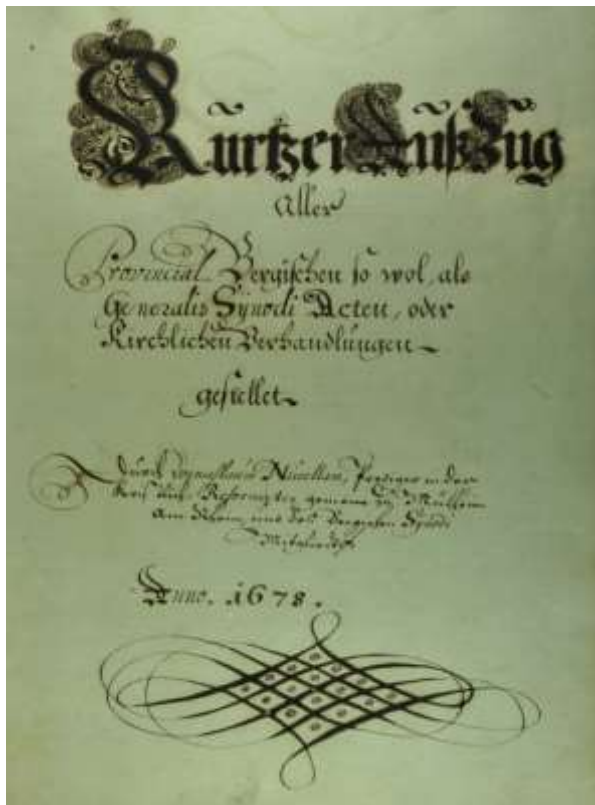 Kurtzer Außzug
Aller
Provincial Bergischen so wol, als
Generalis Synodi Acten, oder
Kirchlichen Verhandlungen
gestellet
Durch Neuellum, Prediger in der
Reformirter gemeine zu Mülheim
am Rhein, und des Bergischen Synodi
Anno. 1678.